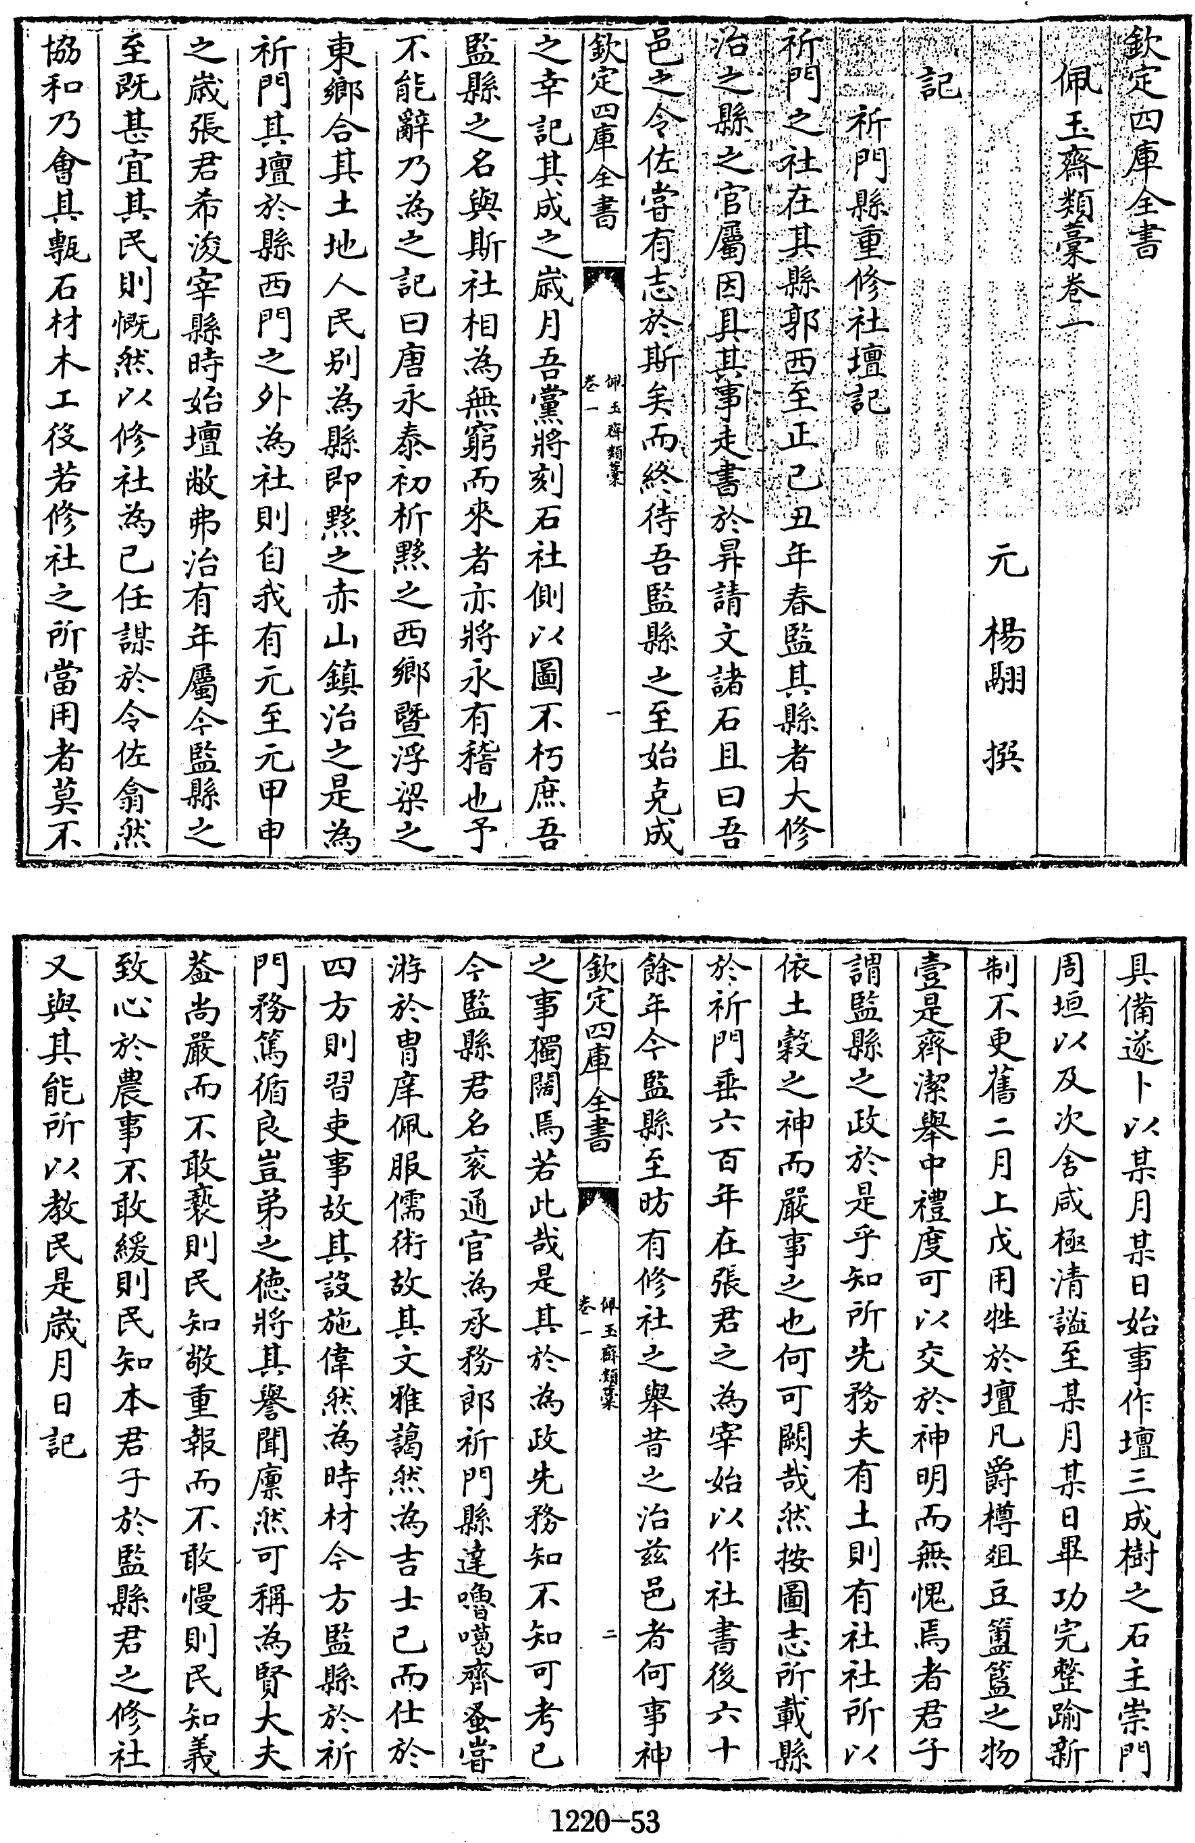 欽定四庫全書
佩玉齋類藁卷一
元 楊翮 撰
記
祈門縣重修社壇記
祈門之社在其縣郭西至正己丑年春監其縣者大修
治之縣之官屬因具其事走書於昇請文諸石且曰吾
邑之令佐嘗有志於斯矣而終待吾監縣之至始克成
欽定四庫全書
佩玉齋類藁
卷一
一
之幸記其成之歲月吾黨將刻石社側以圖不朽庶吾
監縣之名與斯社相為無窮而來者亦將永有稽也予
不能辭乃為之記曰唐永泰初析黟之西鄉暨浮梁之
東鄉合其土地人民別為縣即黟之赤山鎮治之是為
祈門其壇於縣西門之外為社則自我有元至元甲申
之歲張君希浚宰縣時始壇敝弗治有年屬今監縣之
至既甚宜其民則慨然以修社為己任謀於令佐翕然
協和乃會其甎石材木工役若修社之所當用者莫不
具備遂卜以某月某日始事作壇三成樹之石主崇門
周垣以及次舍咸極清謐至某月某日畢功完整踰新
制不更舊二月上戊用牲於壇凡爵樽俎豆簠簋之物
壹是齊潔舉中禮度可以交於神明而無愧焉者君子
謂監縣之政於是乎知所先務夫有土則有社社所以
依土穀之神而嚴事之也何可闕哉然按圖志所載縣
於祈門垂六百年在張君之為宰始以作社書後六十
餘年今監縣至昉有修社之舉昔之治茲邑者何事神
欽定四庫全書
佩玉齋類藁
卷一
二
之事獨闊焉若此哉是其於為政先務知不知可考已
今監縣君名衮通官為承務郎祈門縣達嚕噶齊蚤嘗
游於胄庠佩服儒術故其文雅藹然為吉士已而仕於
四方則習吏事故其設施偉然為時材今方監縣於祈
門務篤循良豈弟之德將其譽聞廩然可稱為賢大夫
葢尚嚴而不敢褻則民知敬重報而不敢慢則民知義
致心於農事不敢緩則民知本君子於監縣君之修社
又與其能所以教民是歲月日記
1220-53